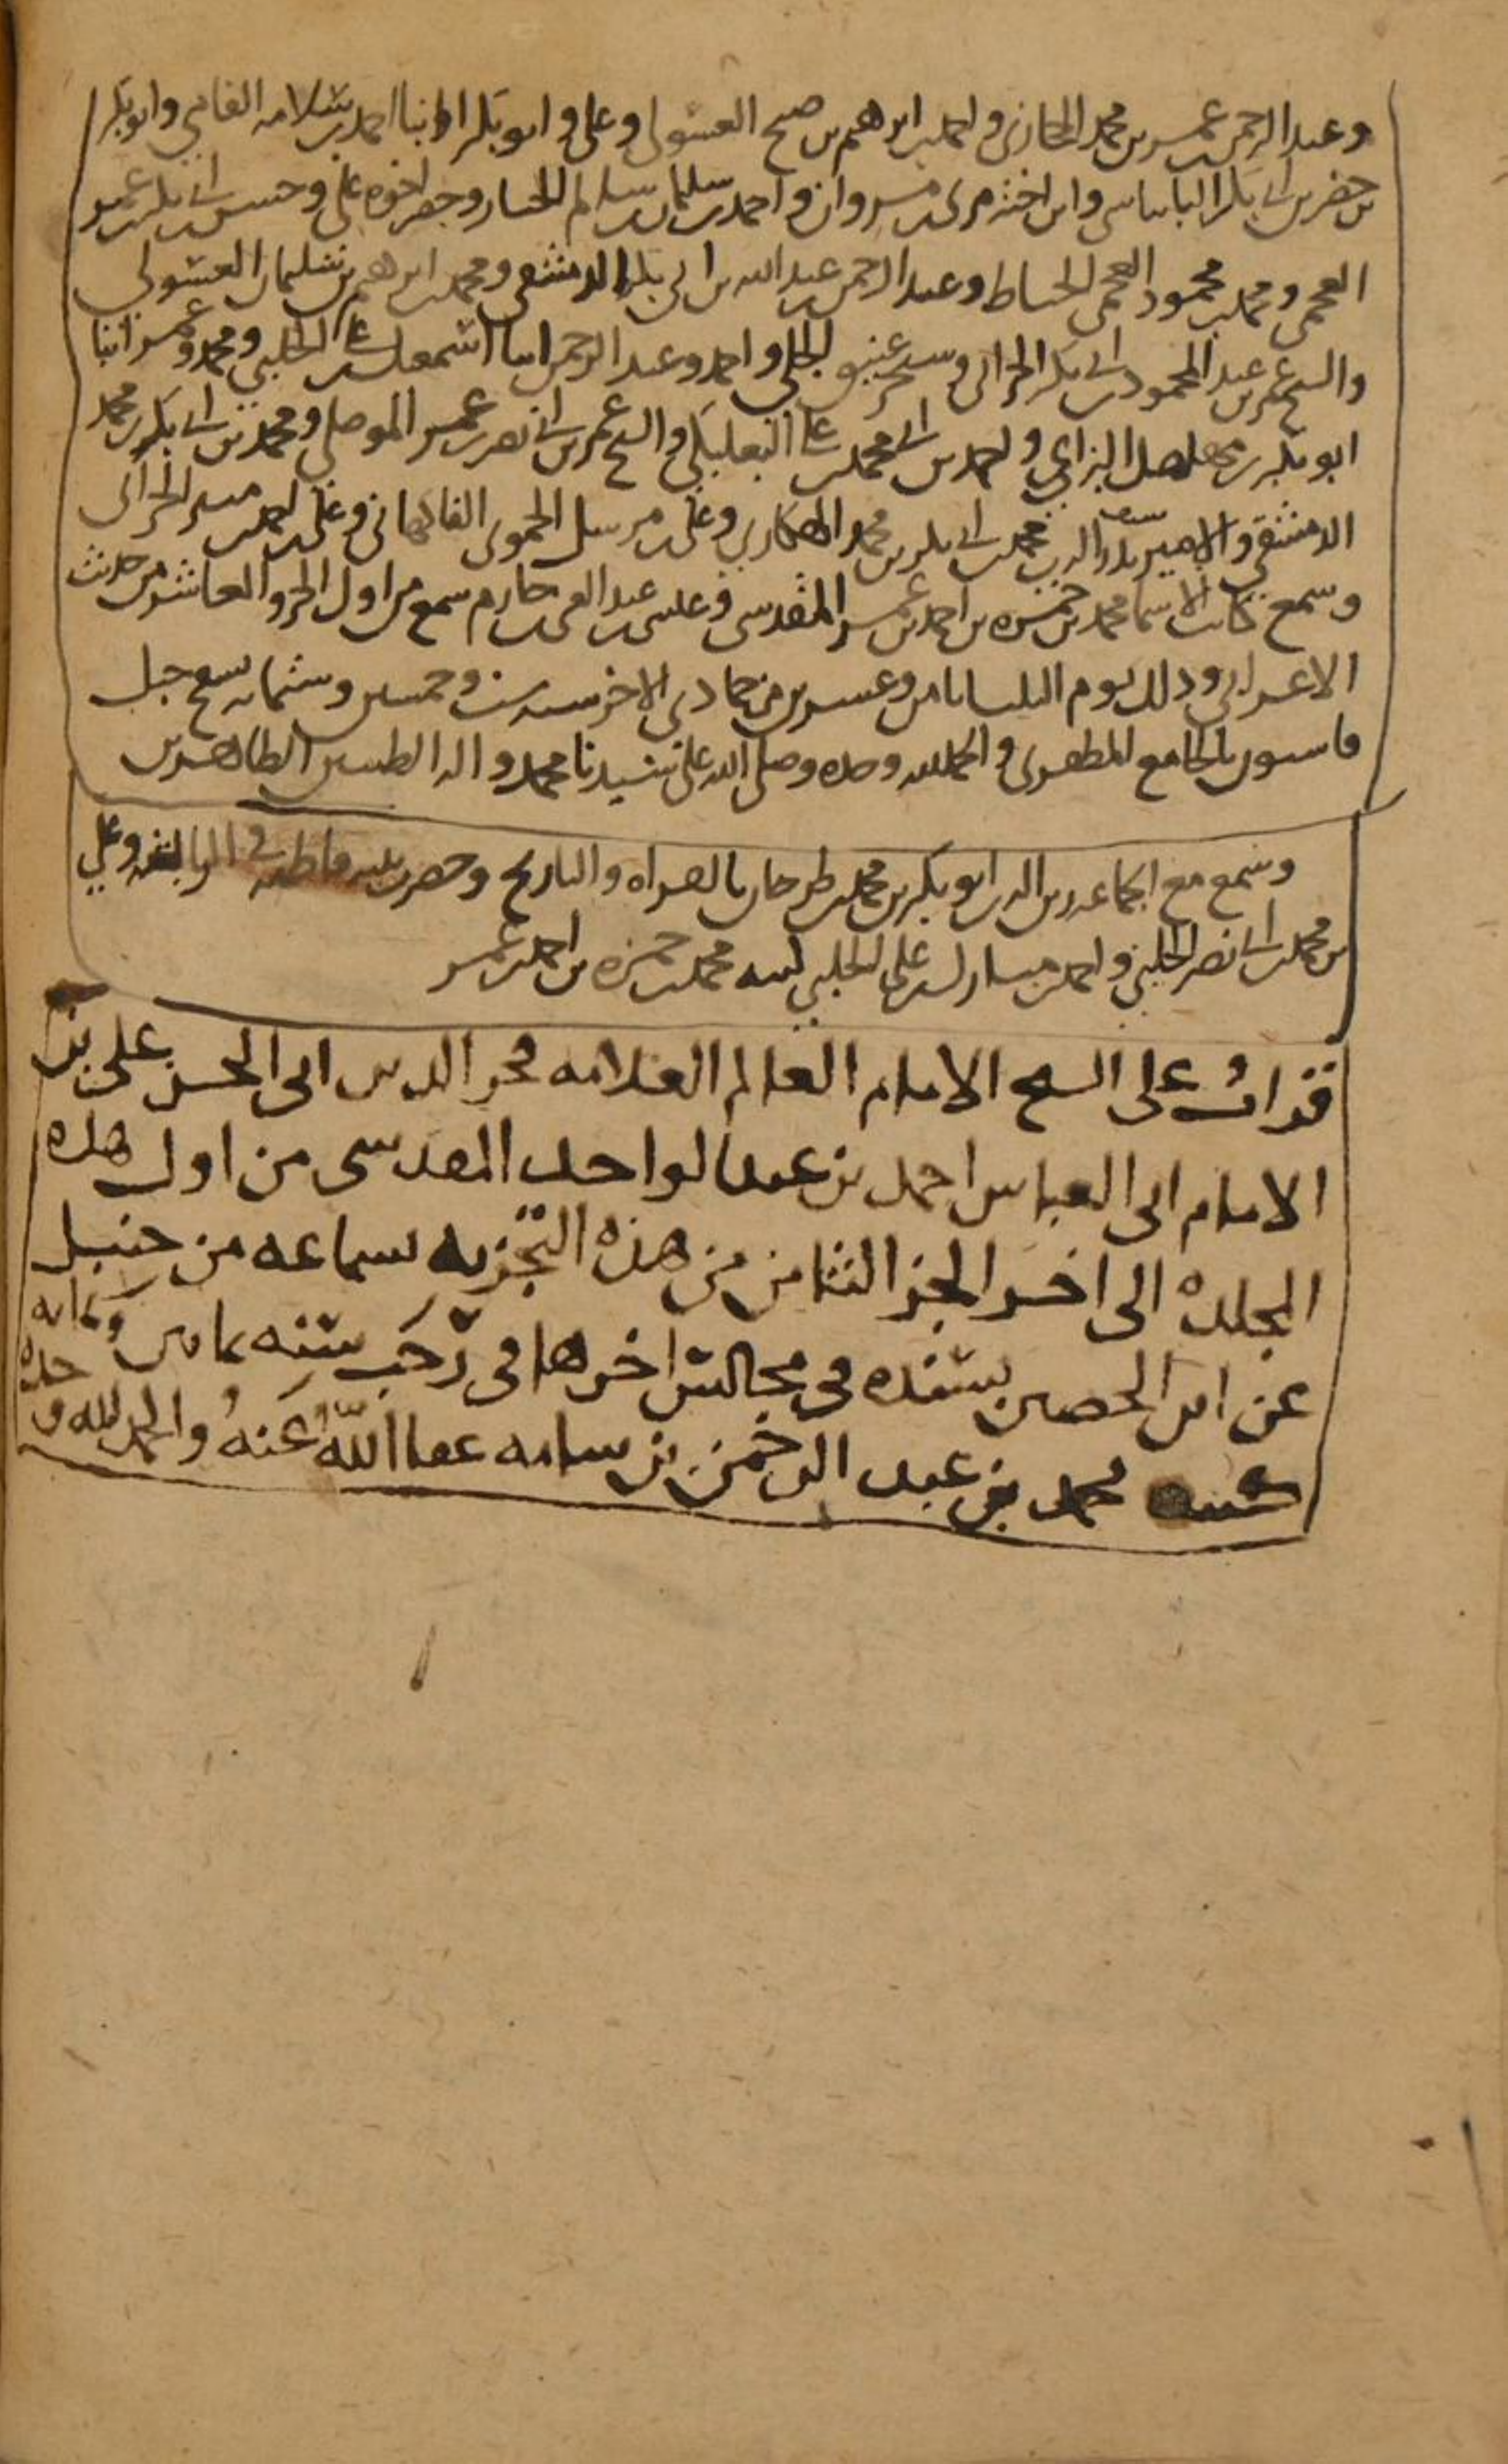 وعبد الرحمن بن عمر بن محمد الحارثي واحمد بن ابراهيم بن صبح العسولي وعلي وابو بكر ابنا احمد بن سلامه وابو بكر
بن خضر بن ابي بكر وابن اخته مري بن مروان واحمد بن سليمان بن سالم وحضر اخوه علي وحسن بن ابي بكر بن عمر
العجمي ومحمد بن محمود العجمي الخياط وعبد الرحمن بن عبد الله بن ابي بكر الدمشقي ومحمد بن ابراهيم بن سليمان العسولي
والشيخ عمر بن عبد المحمود بن ابي بكر الحراني وسنجر عتيق واحمد وعبد الرحمن ابنا اسمعيل بن علي الحلبي ومحمد وعمر ابنا
ابو بكر بن واحمد بن ابي محمد بن علي البعلبكي والشيخ عمر بن ابي نصر بن عمر الموصلي ومحمد بن ابي بكر بن محمد
الدمشقي والامير بدر الدين محمد بن ابي بكر بن محمد الهكاري وعلي بن مرسل الحموي الفاكهاني وعلي بن احمد بن الحراني
وسمع كاتب الاسما محمد بن حمزه بن احمد بن عمر المقدسي وعلي بن عبد الغني بن حازم سمع من اول الجزو العاشر من حديث
الاعرابي وذلك يوم الثلثا ثامن وعشرين من جمادى الاخر سنه ست وخمسين وستمايه بسفح جبل
قاسيون بالجامع المظفري والحمد لله وحده وصلى الله على سيدنا محمد واله الطيبين الطاهرين
وسمع مع الجماعه زين الدين ابو بكر بن محمد بن طرخان بالقراه والتاريخ وحضرت بنته فاطمه في الرابعه وعلي
بن محمد بن ابي نصر الحلبي واحمد بن مبارك بن علي الحلبي كتبه محمد بن حمزه بن احمد بن عمر
قرات على الشيخ الامام العالم العلامه فخر الدين ابي الحسن علي بن
الامام ابي العباس احمد بن عبد الواحد المقدسي من اول هذه
المجلده الى اخر الجز الثامن من هذه التجزيه بسماعه من حنبل
عن ابن الحصين بسنده في مجالس اخرها في رجب سنه ثمانين وستمايه
كتبه محمد بن عبد الرحمن بن سامه عفا الله عنه والحمد لله وحده